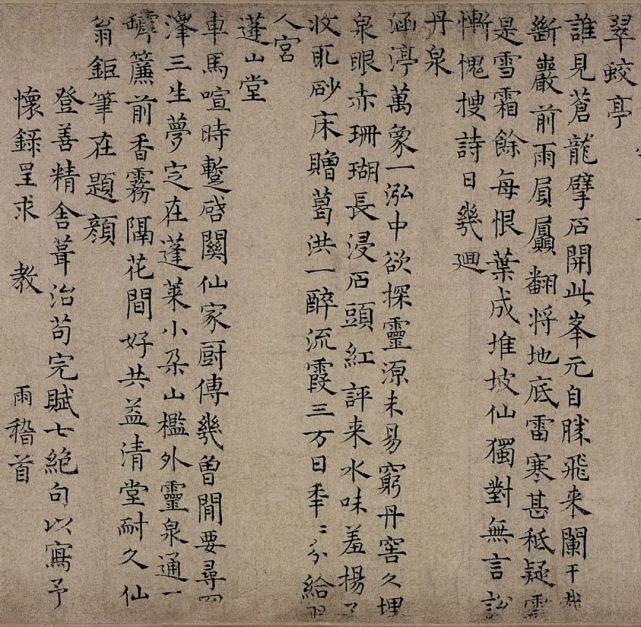 翠蛟亭
誰見蒼龍擘石開此峯元自勝飛来闌干
斷巖前雨屓贔翻将地底雷寒甚秪疑雲
是雪霜餘每恨葉成堆坡仙獨對無言訟
慚愧搜詩日幾廻
丹泉
涵渟萬象一泓中欲探靈源未易窮丹窖久埋
泉眼赤珊瑚長浸石頭紅評来水味羞揚
收取砂床贈葛洪一醉流霞三万日秊〻分給羽
人宮
蓬山堂
車馬喧時蹔啓關仙家厨傳幾曾閒要尋
澤三生夢定在蓬萊小朶山檻外靈泉通一
罅簾前香霧隔花間好共益清堂耐久仙
翁鉅筆在題顔
登善精舎葺治苟完賦七絶句以寫予
懷録呈求 教 雨稽首